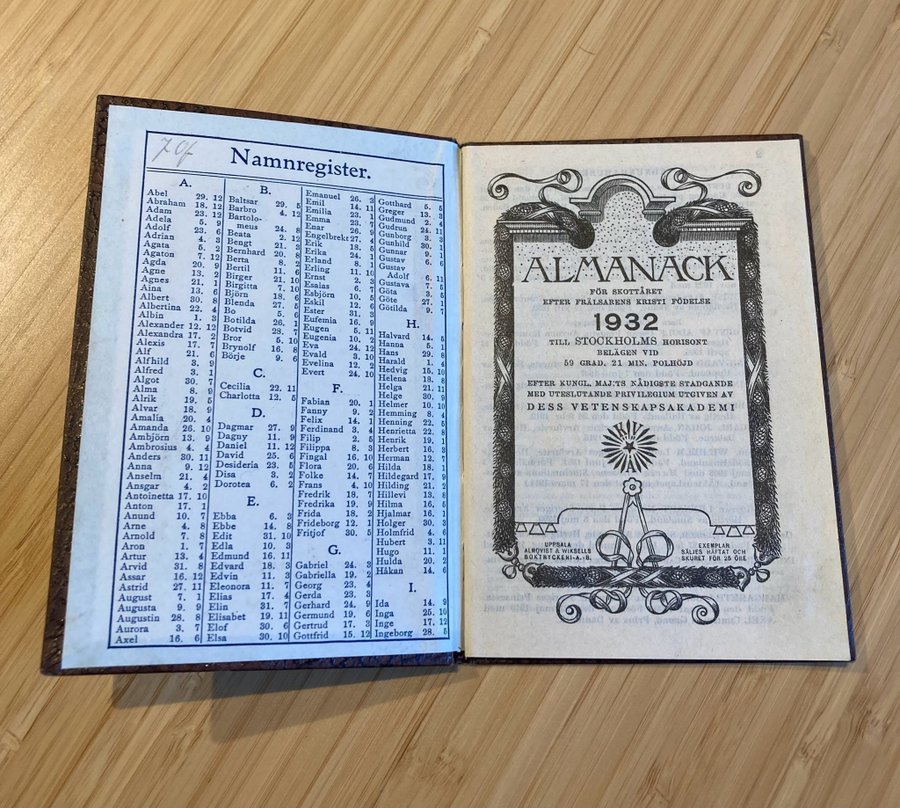 7 of
Namnregister.
A.
Abel 29. 12
Abraham 18. 12
Adam 23. 12
Adela 5. 9
Adolf 23. 6
Adrian 4. 3
Agata 5. 2
Agaton 7. 12
Agda 20. 9
Agne 13. 2
Agnes 21. 1
Aina 13. 6
Albert 30. 8
Albertina 22. 4
Albin 1. 3
Alexander 12. 12
Alexandra 17. 2
Alexis 17. 7
Alf 21. 6
Alfhild 3. 9
Alfred 3. 1
Algot 30. 7
Alma 8. 9
Alrik 19. 5
Alvar 18. 9
Amalia 20. 4
Amanda 26. 10
Ambjörn 13. 9
Ambrosius 4. 4
Anders 30. 11
Anna 9. 12
Anselm 21. 4
Ansgar 4. 2
Antoinetta 17. 10
Anton 17. 1
Anund 10. 7
Arne 4. 8
Arnold 7. 8
Aron 1. 7
Artur 13. 4
Arvid 31. 8
Assar 16. 12
Astrid 27. 11
August 7. 1
Augusta 9. 9
Augustin 28. 8
Aurora 3. 7
Axel 16. 6
B.
Baltsar 29. 5
Barbro 4. 12
Bartolo-
meus 24. 8
Beata 2. 12
Bengt 21. 3
Bernhard 20. 8
Berta 8. 2
Bertil 11. 6
Birger 21. 10
Birgitta 7. 10
Björn 18. 6
Blenda 27. 5
Bo 5. 6
Botilda 26. 1
Botvid 28. 7
Bror 5. 10
Brynolf 16. 8
Börje 9. 6
C.
Cecilia 22. 11
Charlotta 12. 5
D.
Dagmar 27. 9
Dagny 11. 9
Daniel 11. 12
David 25. 6
Desideria 23. 5
Disa 3. 2
Dorotea 6. 2
E.
Ebba 6. 3
Ebbe 14. 8
Edit 31. 10
Edla 10. 3
Edmund 16. 11
Edvard 18. 3
Edvin 11. 3
Eleonora 11. 7
Elias 17. 4
Elin 31. 7
Elisabet 19. 11
Elof 30. 6
Elsa 30. 10
Emanuel 26. 3
Emil 14. 11
Emilia 23. 1
Emma 23. 7
Enar 26. 9
Engelbrekt 27. 4
Erik 18. 5
Erika 24. 1
Erland 8. 1
Erling 11. 10
Ernst 2. 3
Esaias 6. 7
Esbjörn 10. 5
Eskil 12. 6
Ester 31. 3
Eufemia 16. 9
Eugen 5. 11
Eugenia 10. 2
Eva 24. 12
Evald 3. 10
Evelina 12. 2
Evert 24. 10
F.
Fabian 20. 1
Fanny 9. 2
Felix 14. 1
Ferdinand 3. 4
Filip 2. 5
Filippa 8. 3
Fingal 16. 10
Flora 20. 6
Folke 14. 7
Frans 4. 10
Fredrik 18. 7
Fredrika 19. 9
Frida 18. 2
Frideborg 12. 1
Fritjof 30. 5
G.
Gabriel 24. 3
Gabriella 19. 2
Georg 23. 4
Gerda 23. 3
Gerhard 24. 9
Germund 19. 6
Gertrud 17. 3
Gottfrid 15. 12
Gotthard 5. 5
Greger 13. 3
Gudmund 2. 4
Gudrun 24. 11
Gunborg 3. 3
Gunhild 30. 1
Gunnar 9. 1
Gustav 6. 6
Gustav
Adolf 6. 11
Gustava 7. 5
Göta 3. 5
Göte 27. 1
Götilda 9. 7
H.
Halvard 14. 5
Hanna 5. 1
Hans 29. 8
Harald 1. 4
Hedvig 15. 10
Helena 18. 8
Helga 21. 11
Helge 30. 9
Helmer 10. 10
Hemming 8. 4
Henning 22. 5
Henrietta 22. 8
Henrik 19. 1
Herbert 16. 3
Herman 12. 7
Hilda 18. 1
Hildegard 17. 9
Hilding 21. 2
Hillevi 13. 8
Hilma 16. 5
Hjalmar 16. 1
Holger 30. 3
Holmfrid 4. 6
Hubert 3. 11
Hugo 11. 1
Hulda 20. 2
Håkan 14. 6
I.
Ida 14. 9
Inga 25. 10
Inge 17. 12
Ingeborg 28. 5
ALMANACK
FÖR SKOTTÅRET
EFTER FRÄLSARENS KRISTI FÖDELSE
1932
TILL STOCKHOLMS HORISONT
BELÄGEN VID
59 GRAD. 21 MIN. POLHÖJD
EFTER KUNGL. MAJ:TS NÅDIGSTE STADGANDE
MED UTESLUTANDE PRIVILEGIUM UTGIVEN AV
DESS VETENSKAPSAKADEMI
UPPSALA
ALMQVIST & WIKSELLS
BOKTRYCKERI-A.-B.
EXEMPLAR
SÄLJES HÄFTAT OCH
SKURET FÖR 25 ÖRE